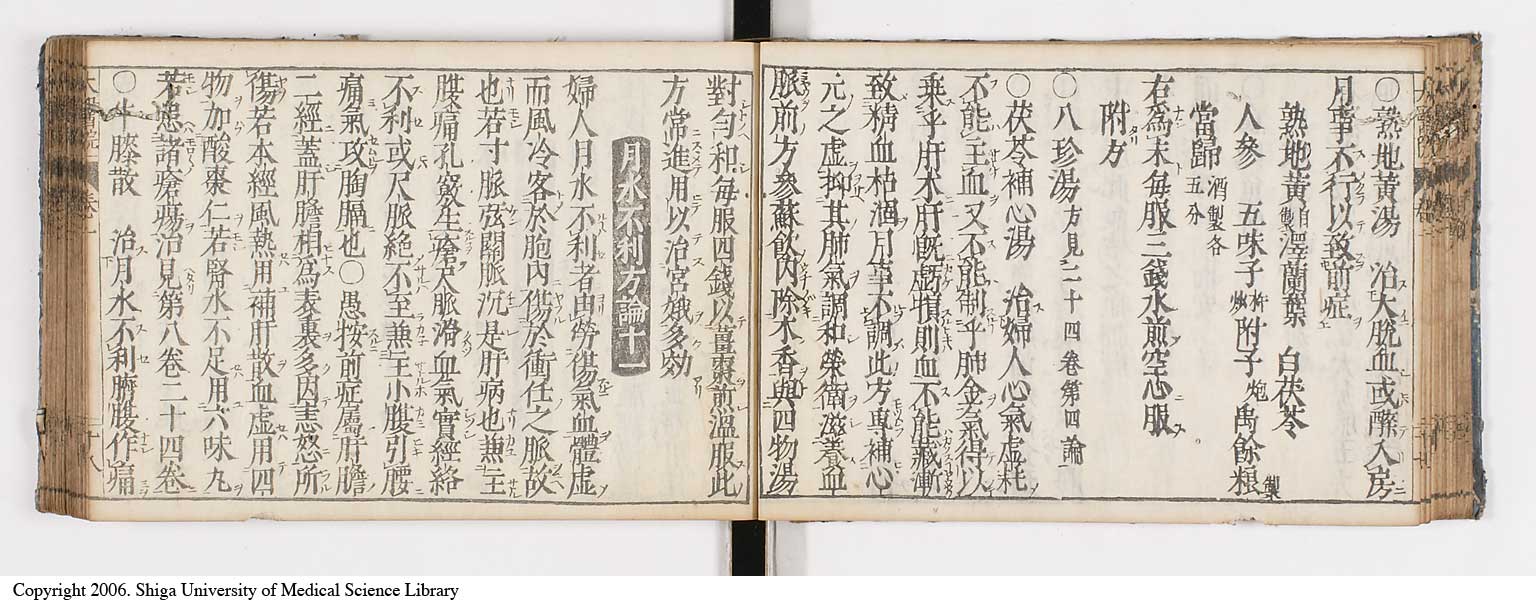 ○熟地黃湯 治大脫血或醉入房
月事不行以致前症
熟地黃自製澤蘭葉 白茯苓
人參 五味子杵炒附子炮禹餘粮製
當歸酒製各五分
右為末每服三錢水煎空心服
附方
○八珍湯方見二十四卷第四論
○茯苓補心湯 治婦人心氣虛耗
不能主血又不能制乎肺金氣得以
乘乎肝木肝既虧損則血不能藏漸
致精血枯涸月事不調此方專補心
元之虛抑其肺氣調和榮衛滋養血
脈前方參蘇飲內除木香與四物湯
對勻和每服四錢以薑棗煎溫服此
方常進用以治宮娥多効
月水不利方論十一
婦人月水不利者由勞傷氣血體虛
而風冷客於胞內傷於衝任之脈故
也若寸脈弦關脈沉是肝病也兼主
腹痛孔竅生瘡尺脈滑血氣實經絡
不利或尺脈絕不至兼主小腹引腰
痛氣攻胸膈也○愚按前症屬肝膽
二經蓋肝膽相為表裏多因恚怒所
傷若本經風熱用補肝散血虛用四
物加酸棗仁若腎水不足用六味丸
若患諸瘡瘍治見第八卷二十四卷
○牛膝散 治月水不利臍腹作痛
Copyright 2006. Shiga University of Medical Science Library